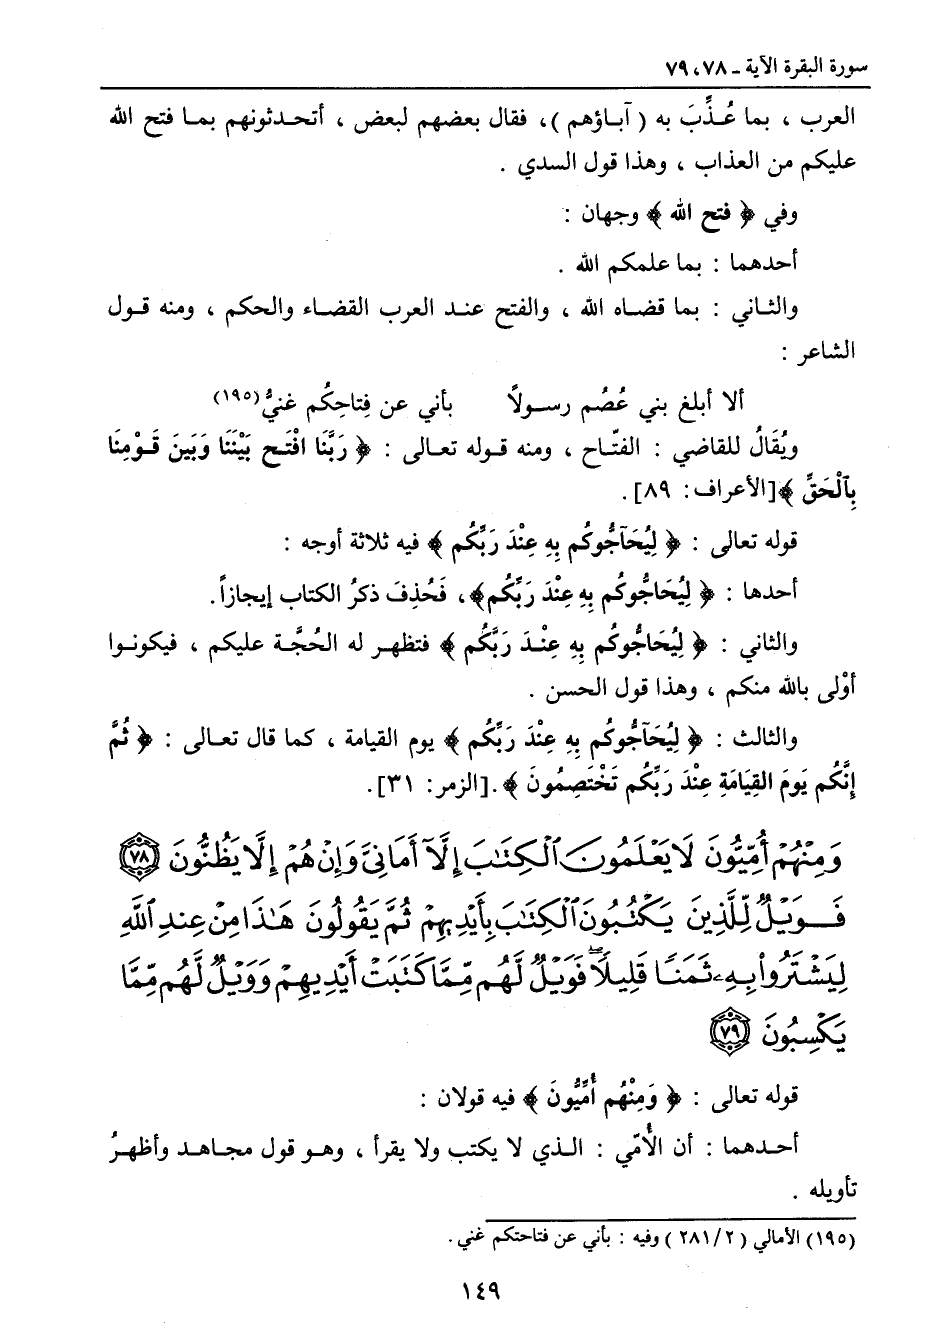 سورة البقرة الآية ـ ٧٨ ، ٧٩
العرب ، بما عُـذِّبَ به ( آبـاؤهم )، فقال بعضهم لبعض ، أتحـدثونهم بمـا فتح الله
عليكم من العذاب ، وهذا قول السدي .
وفي ﴿ فتح الله ﴾ وجهان :
أحدهما : بما علمكم الله .
والثـاني : بما قضـاه الله ، والفتح عنـد العرب القضـاء والحكم ، ومنه قـول
الشاعر :
ألا أبلغ بني عُصْم رسـولاً بأني عن فِتاحِكُم غنيُّ(١٩٥)
ويُقَالُ للقاضي : الفتّـاح ، ومنه قـوله تعـالى : ﴿ رَبَّنَا افْتَـح بَيْنَنَا وَبَينَ قَـوْمِنَا
بِالْحَقِّ ﴾[الأعراف: ٨٩].
قوله تعالى : ﴿ لِيُحَآجُّوكُم بِهِ عِنْدَ رَبِّكُم ﴾ فيه ثلاثة أوجه :
أحدها : ﴿ لِيُحَاجُّوكُم بِهِ عِنْدَ رَبِّكُم﴾، فَحُذِفَ ذكرُ الكتاب إيجازاً.
والثاني : ﴿ لِيُحَاجُّوكُم بِهِ عِنْـدَ رَبِّكُم ﴾ فتظهـر له الحُجَّـة عليكم ، فيكونـوا
أوْلى بالله منكم ، وهذا قول الحسن .
والثالث : ﴿ لِيُحَآجُّوكُم بِهِ عِنْدَ رَبِّكُم ﴾ يوم القيامة ، كما قال تعـالى : ﴿ ثُمَّ
إِنَّكُم يَومَ القِيَامَةِ عِنْدَ رَبِّكُم تَخْتَصِمُونَ ﴾.[الزمر: ٣١].
وَمِنْهُمْ أُمِّيُّونَ لَا يَعْلَمُونَ ٱلْكِتَٰبَ إِلَّآ أَمَانِىَّ وَإِنْ هُمْ إِلَّا يَظُنُّونَ ٧٨
فَوَيْلٌ لِّلَّذِينَ يَكْتُبُونَ ٱلْكِتَٰبَ بِأَيْدِيهِمْ ثُمَّ يَقُولُونَ هَٰذَا مِنْ عِندِ ٱللَّهِ
لِيَشْتَرُوا۟ بِهِۦ ثَمَنًا قَلِيلًا ۖ فَوَيْلٌ لَّهُم مِّمَّا كَتَبَتْ أَيْدِيهِمْ وَوَيْلٌ لَّهُم مِّمَّا
يَكْسِبُونَ ٧٩
قوله تعالى : ﴿ وَمِنْهُم أُمِّيُّونَ ﴾ فيه قولان :
أحـدهما : أن الأُمّي : الـذي لا يكتب ولا يقرأ ، وهـو قول مجـاهد وأظهرُ
تأويله .
(١٩٥) الأمالي ( ٢ / ٢٨١ ) وفيه : بأني عن فتاحتكم غني .
١٤٩